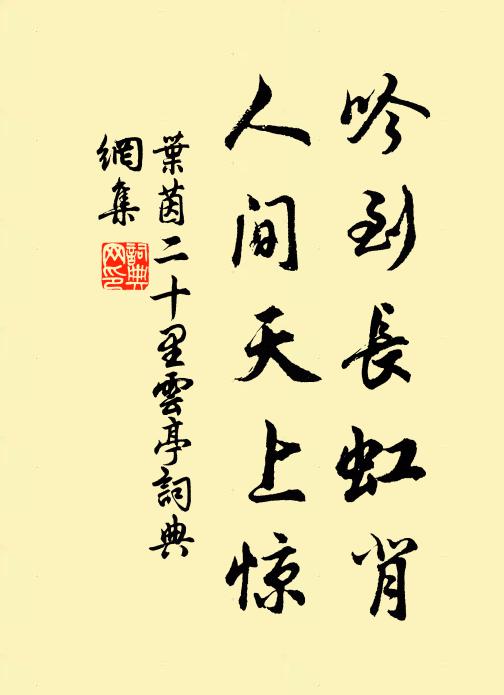 吟到長虹肖
人間天上惊
葉茵二十里雲亭詞典
網集
詞典
网印